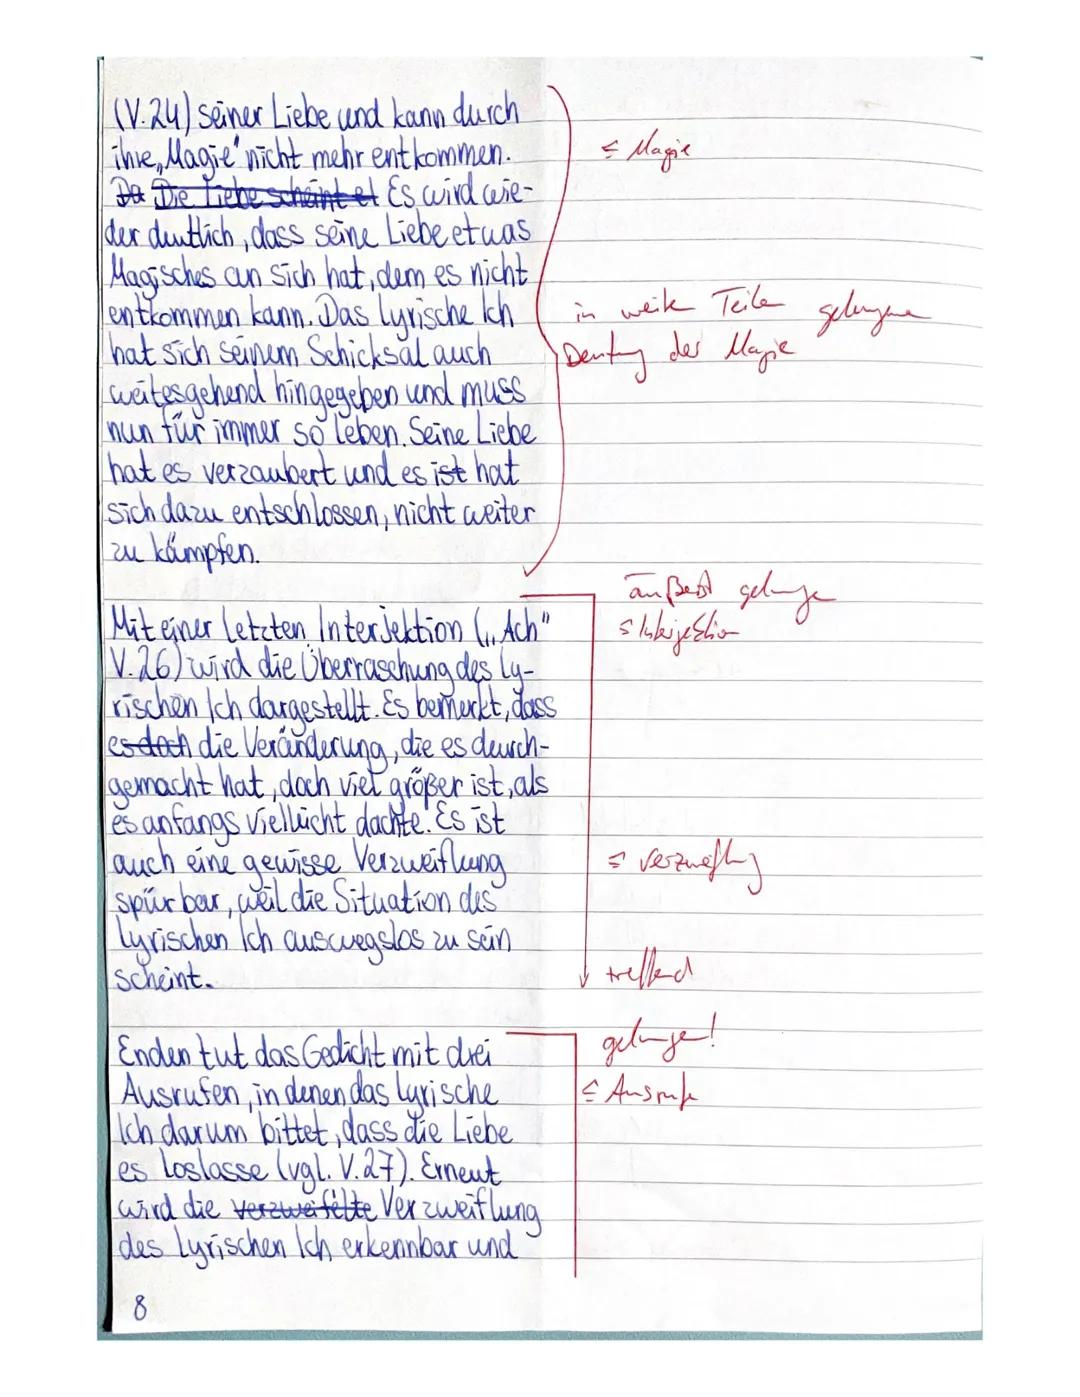 (V.24) seiner Liebe und kann durch
ihre „Magie" nicht mehr entkommen.
Da Die Liebe scheint et Es wird wie-
der deutlich, dass seine Liebe etwas
Magisches an sich hat, dem es nicht
entkommen kann. Das lyrische Ich
hat sich seinem Schicksal auch
weitesgehend hingegeben und muss
nun für immer so leben. Seine Liebe
hat es verzaubert und es ist hat
sich dazu entschlossen, nicht weiter
zu kämpfen.
Mit einer letzten Interjektion („Ach"
V. 26) wird die Überraschung des ly-
rischen Ich dargestellt. Es bemerkt, dass
es doch die Veränderung, die es durch-
gemacht hat, doch viel größer ist, als
es anfangs vielleicht dachte. Es ist
auch eine gewisse Verzweiflung
spürbar, weil die Situation des
lyrischen Ich auswegslos zu sein
scheint.
Enden tut das Gedicht mit drei
Ausrufen, in denen das lyrische
Ich darum bittet, dass die Liebe
es loslasse (vgl. V.27). Erneut
wird die verzweifelte Verzweiflung
des lyrischen Ich erkennbar und
8
Magie
in weiten Teilen gelungene
Deutung der Magie
äußerst gelungen
Interjektion
Verzweiflung
treffend
gelungen!
Ausrufe